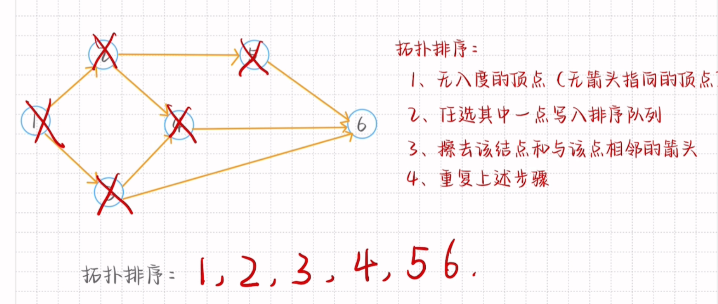 拓扑排序：
1、无入度的顶点（无箭头指向的顶点
2、任选其中一点写入排序队列
3、擦去该结点和与该点相邻的箭头
4、重复上述步骤
1
4
6
拓扑排序：1, 2, 3, 4, 5 6.